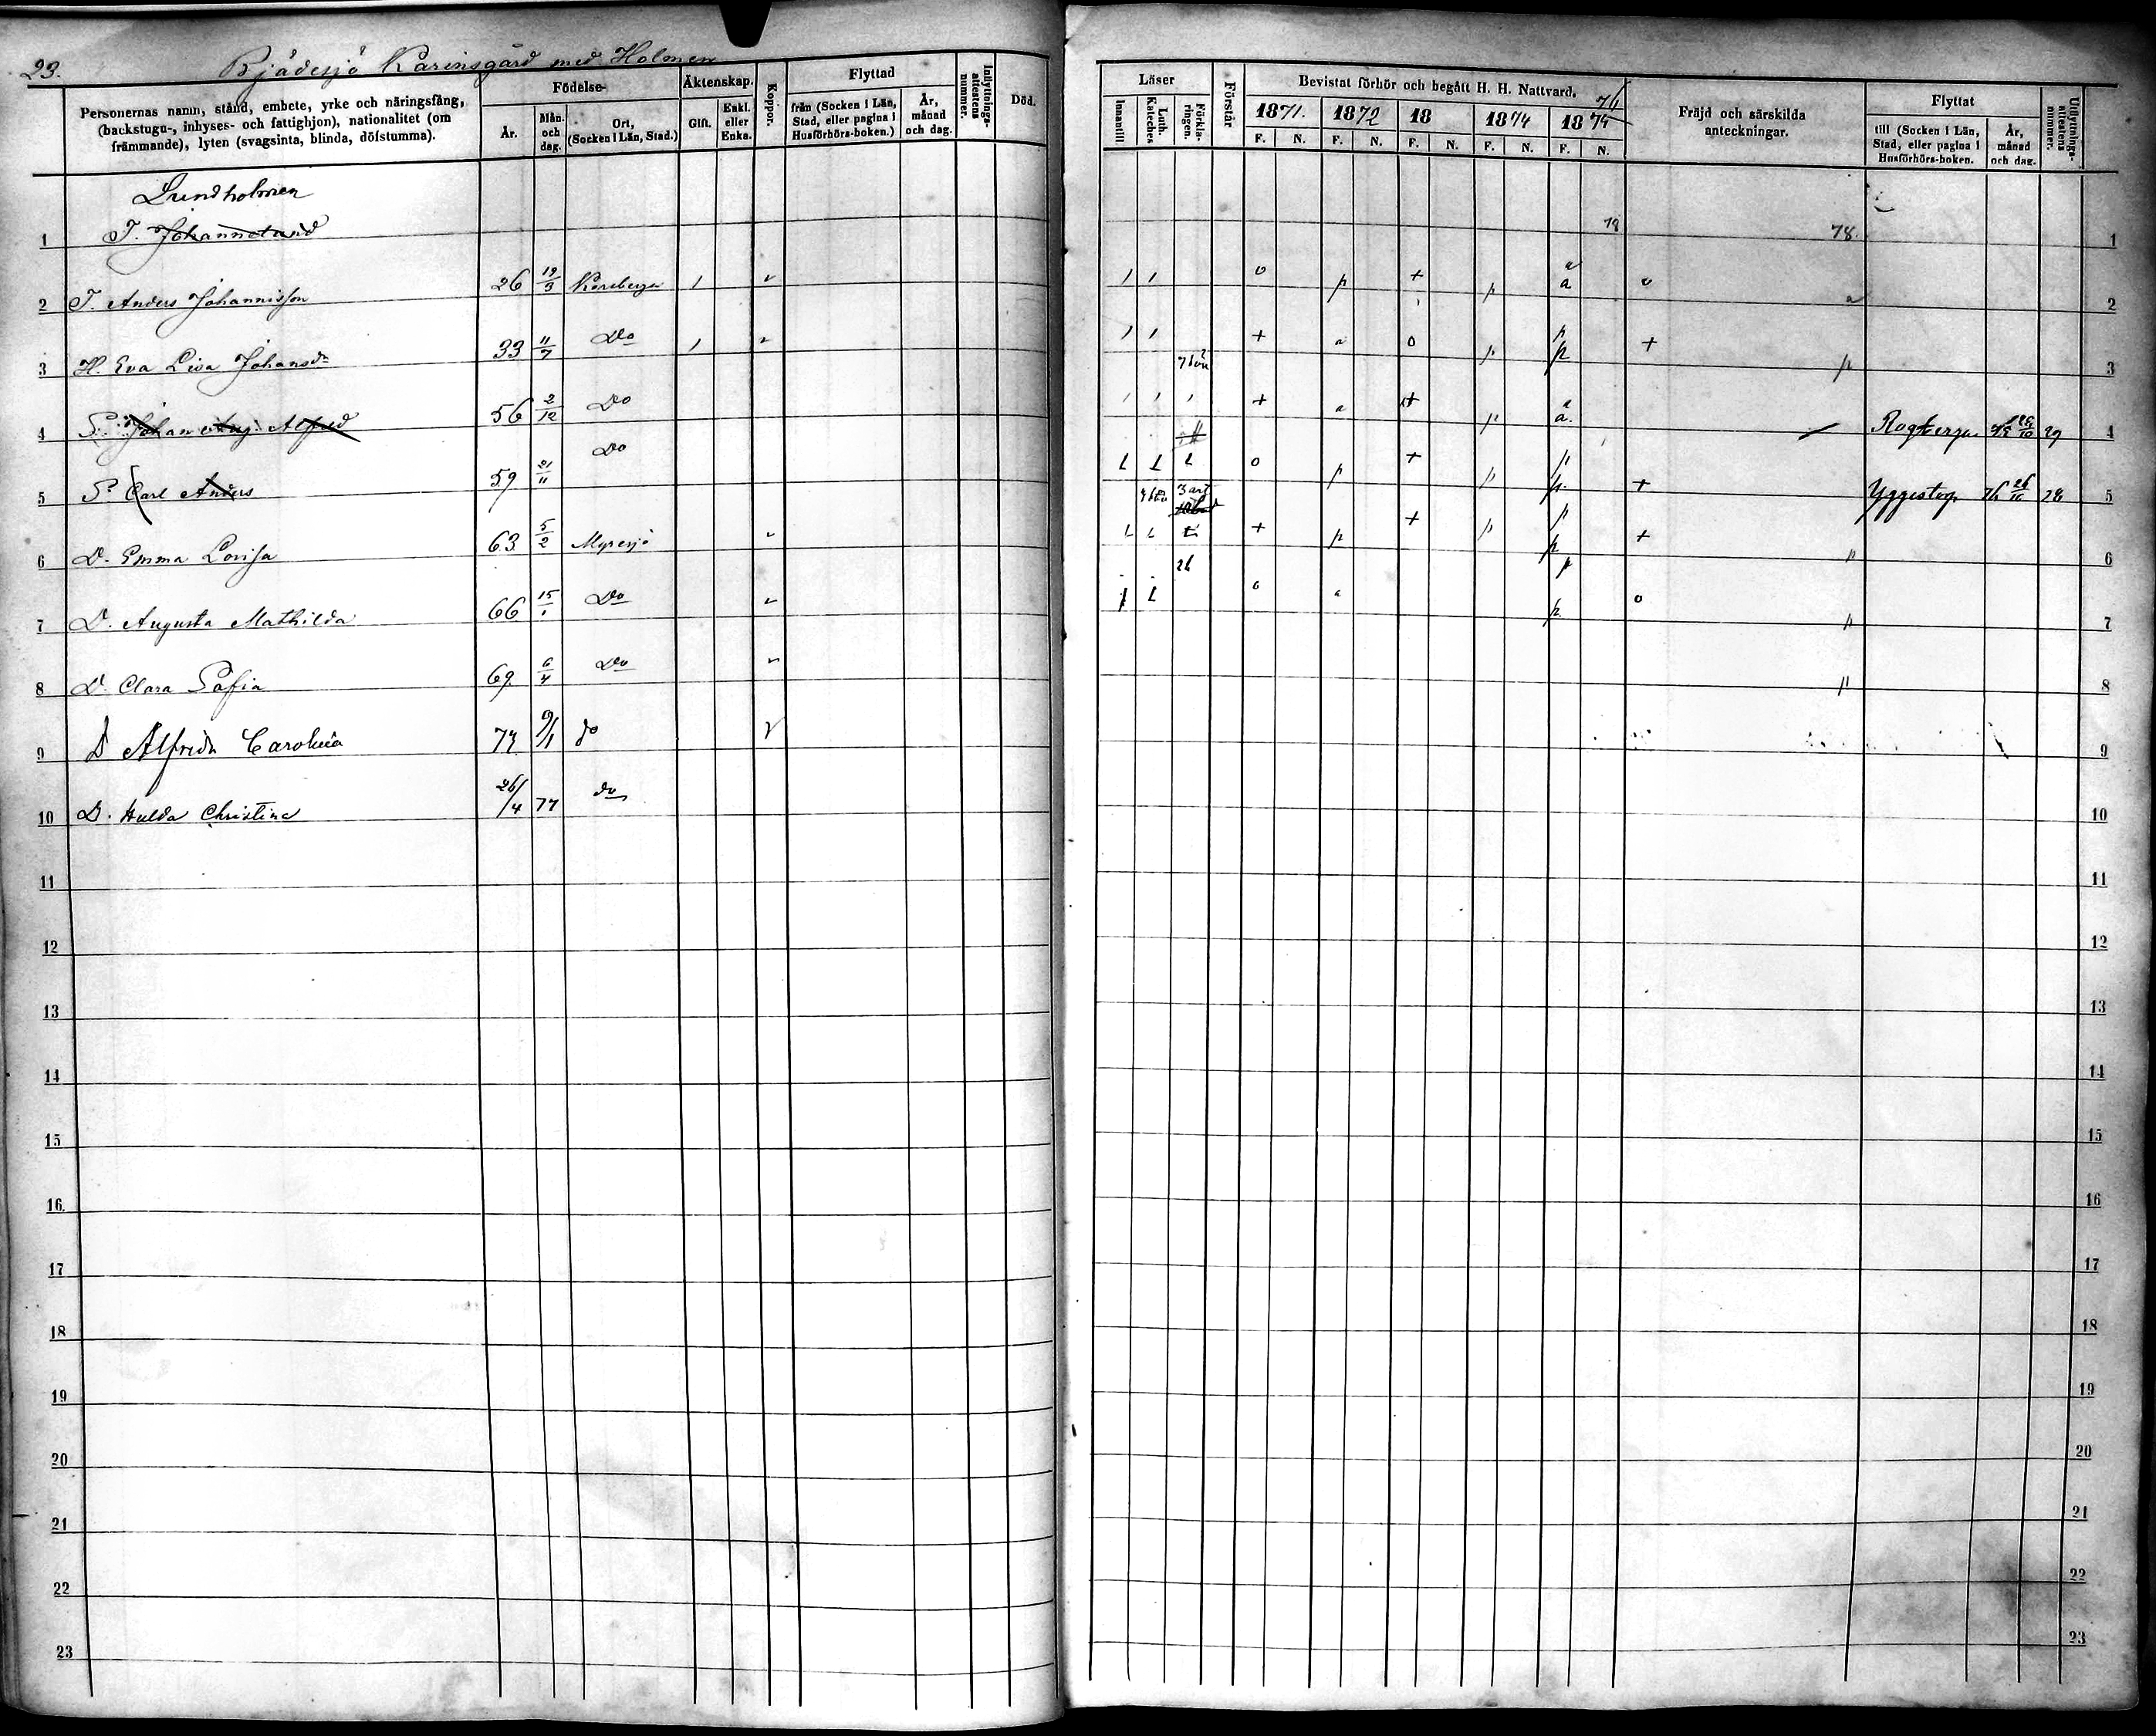 23. Bjädesjö Karinsgård med Holmen
Personernas namn, stånd, embete, yrke och näringsfång, (backstugu-, inhyses- och fattighjon), nationalitet (om främmande), lyten (svagsinta, blinda, döfstumma).
Födelse-
År. Mån. och dag. Ort, (Socken i Län, Stad.)
Äktenskap.
Gift. Enkl. eller Enka.
Koppor.
Flyttad
från (Socken i Län, Stad, eller pagina i Husförhörs-boken.) År, månad och dag.
Inflyttnings-attestens nummer.
Död.
Läser
Innantill. Luth. Kateches Förkla-ringen.
Förstår
Bevistat förhör och begått H. H. Nattvard. 76
1871. 1872 18 1874 1875
F. N. F. N. F. N. F. N. F. N.
Fräjd och särskilda anteckningar.
Flyttat
till (Socken i Län, Stad, eller pagina i Husförhörs-boken. År, månad och dag.
Utflyttnings-attestens nummer.
Lundholmen
1 T. Johannetund 78 78. 1
2 T. Anders Johannisson 26 19/3 Korsberga 2
3 H. Eva Lisa Johansdr 33 11/7 Do 3
4 S. Johan Aug. Alfred 56 2/12 Do Rogberga 29 4
5 S. Carl Anders 59 21/11 Do Yggestorp 76 26/10 28 5
6 D. Emma Lovisa 63 5/2 Myresjö 6
7 D. Augusta Mathilda 66 15/1 Do 7
8 D. Clara Sofia 69 6/4 Do 8
9 D Alfrida Carolina 74 9/1 do 9
10 D. Hulda Christina 26/4 77 do 10
11 11
12 12
13 13
14 14
15 15
16. 16
17 17
18 18
19 19
20 20
21 21
22 22
23 23